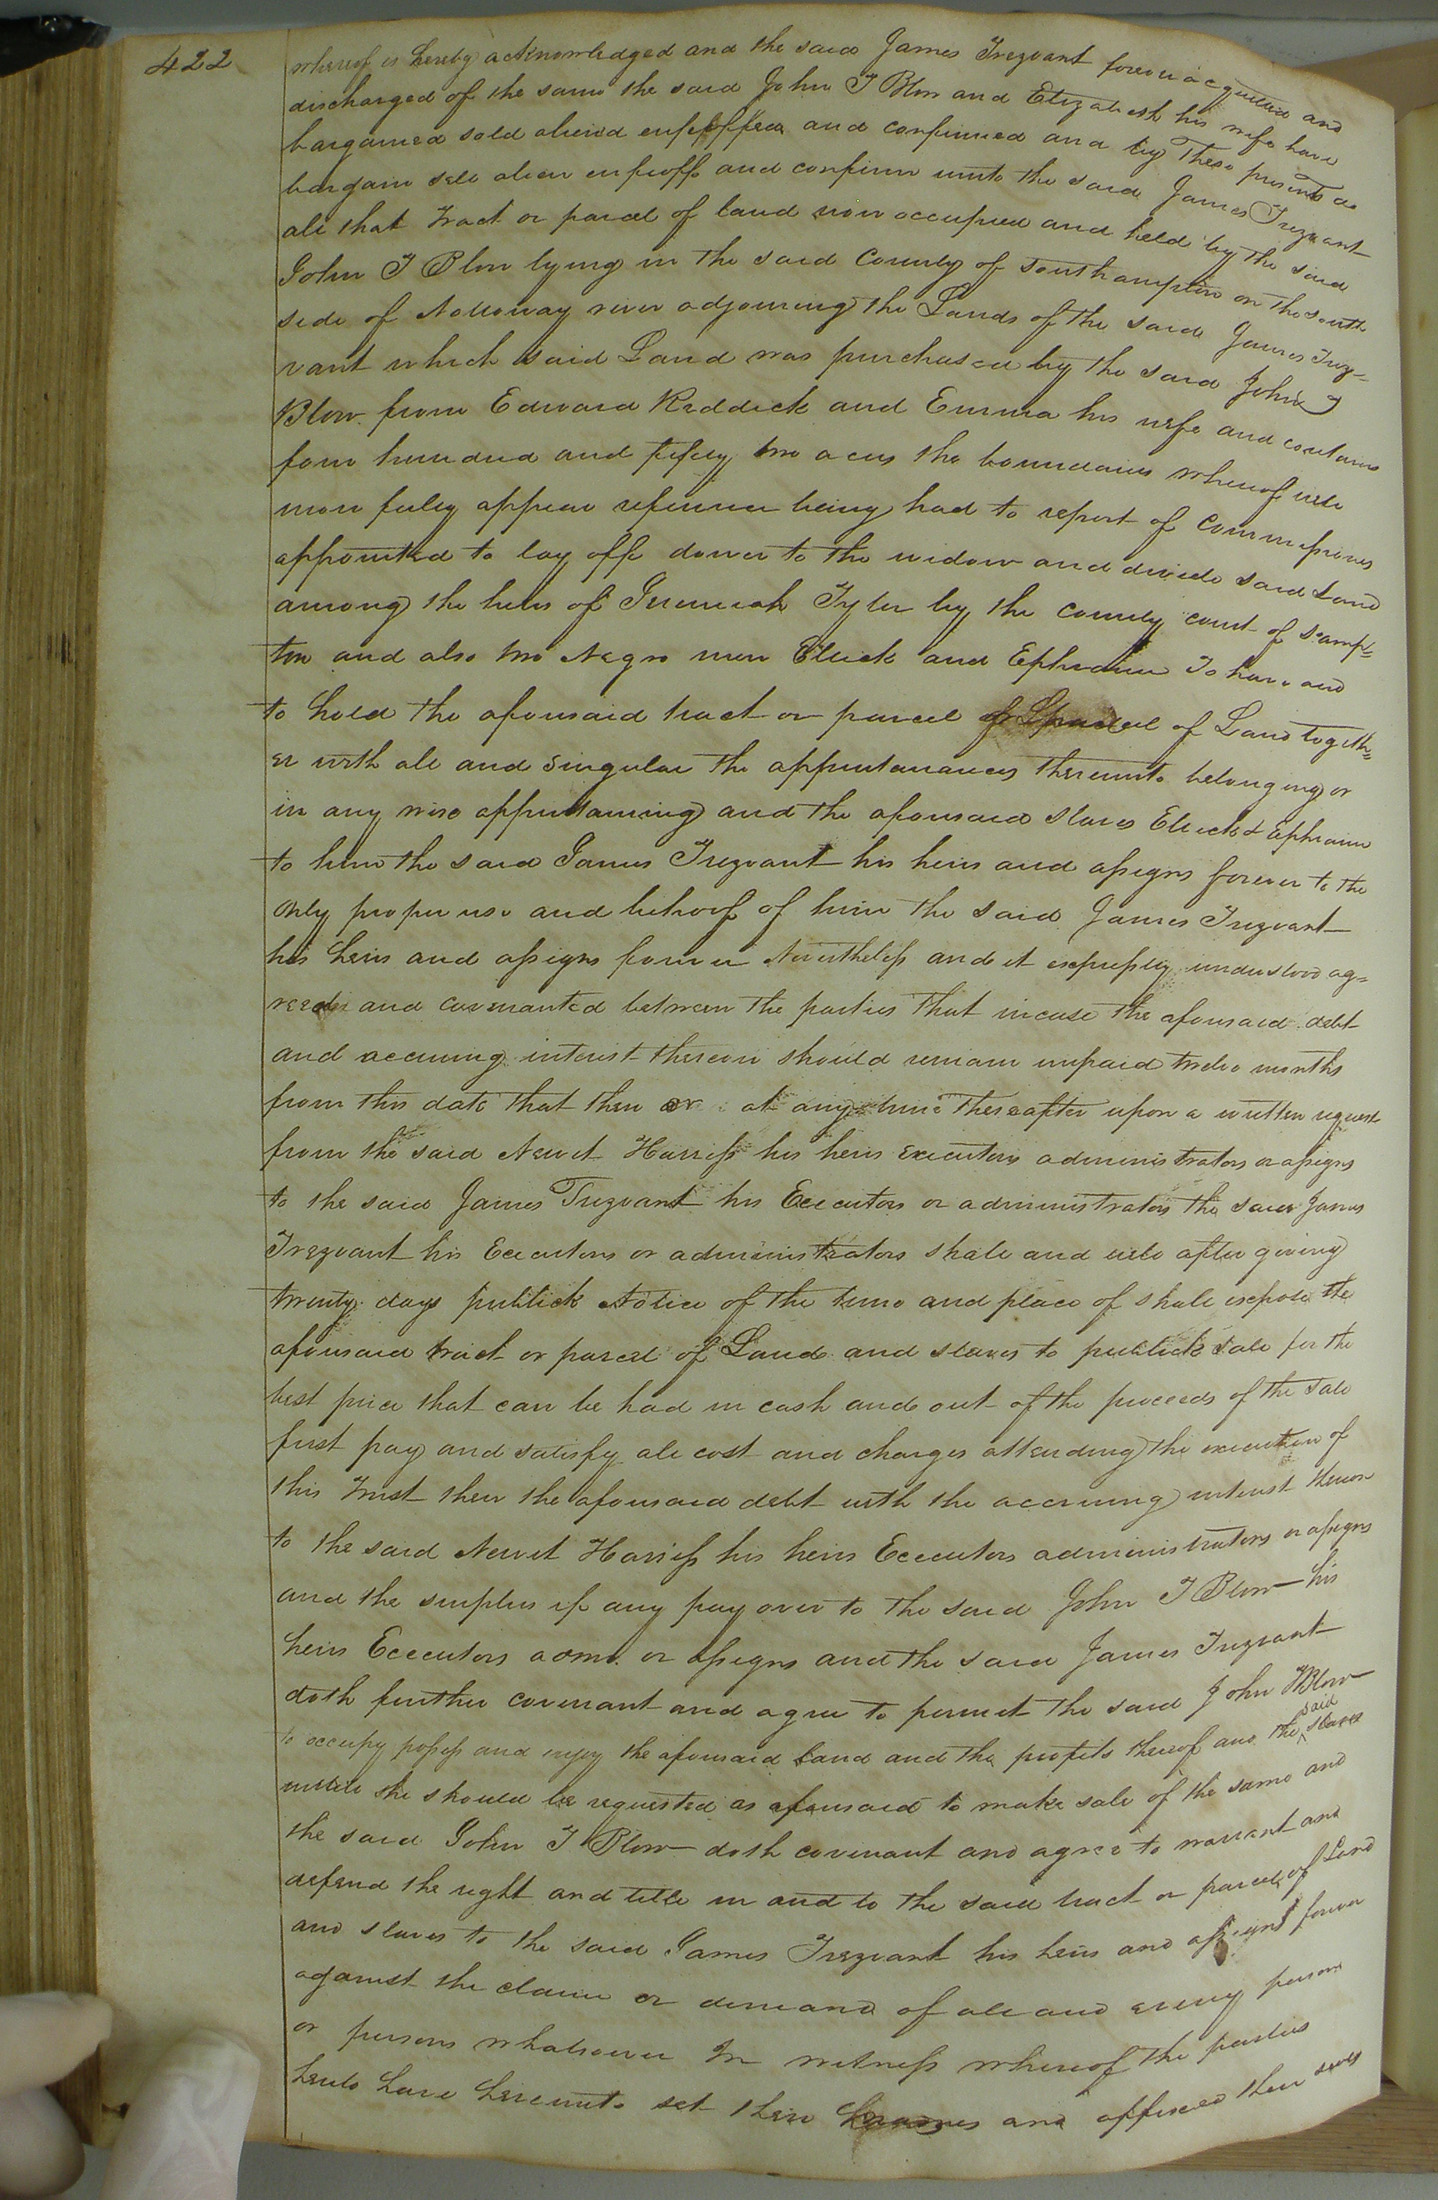 422
whereof is hereby acknowledged and the said James Trezvant forever acquitted and
discharged of the same the said John T Blow and Elizabeth his wife have
bargained sold aliend enfeoffed and confirmed and by these presents do
bargain sell alien enfeoff and confirm unto the said James Trezvant
all that tract or parcel of land now occupied and held by the said
John T Blow lying in the said County of Southampton on the south
side of Nottoway river adjoining the Lands of the said James Trez-
vant which said Land was purchased by the said John T
Blow from Edward Reddick and Emma his wife and contains
four hundred and fifty two acres the boundaries whereof will
more fully appear reference being had to report of Commissioners
appointed to lay off dower to the widow and divide said Land
among the heirs of Jeremiah Tyler by the county court of S:amp=
ton and also two Negro men Eleck and Ephraim To have and
to hold the aforesaid tract or parcel of Land togeth=
er with all and singular the appurtanances thereunto belonging or
in any wise appurtaining and the aforesaid slaves Eleck & Ephraim
to him the said James Trezvant his heirs and assigns forever to the
only proper use and behoof of him the said James Trezvant
his heirs and assigns forever Nevertheless and it expressly understood ag-
reed and covenanted between the parties that incase the aforesaid debt
and accruing interest thereon should remain unpaid twelve months
from this date that then or at any time thereafter upon a written request
from the said Newit Harriss his heirs executors administrators or assigns
to the said James Trezvant his Executors or administrators the said James
Trezvant his Executors or administrators shall and will after giving
twenty days publick Notice of the time and place of shall expose the
aforesaid tract or parcel of Land and slaves to publick sale for the
best price that can be had in cash and out of the proceeds of the sale
first pay and satisfy all cost and charges attending the execution of
this Trust then the aforesaid debt with the accruing interest thereon
to the said Newit Harriss his heirs Executors administrators or assigns
and the surplus if any pay over to the said John T Blow his
heirs Executors adms. or assigns and the said James Trezvant
doth further covenant and agree to permit the said John T Blow
to occupy possess and enjoy the aforesaid Land and the profits thereof and the said slaves
untill she should be requested as aforesaid to make sale of the same and
the said John T Blow doth covenant and agree to warrant and
defend the right and title in and to the said tract or parcel of Land
and slaves to the said James Trezvant his heirs and assigns forever
against the claim or demand of all and every person
or persons whatsoever In witness whereof the parties
hereto have hereunto set their and affixed their seals